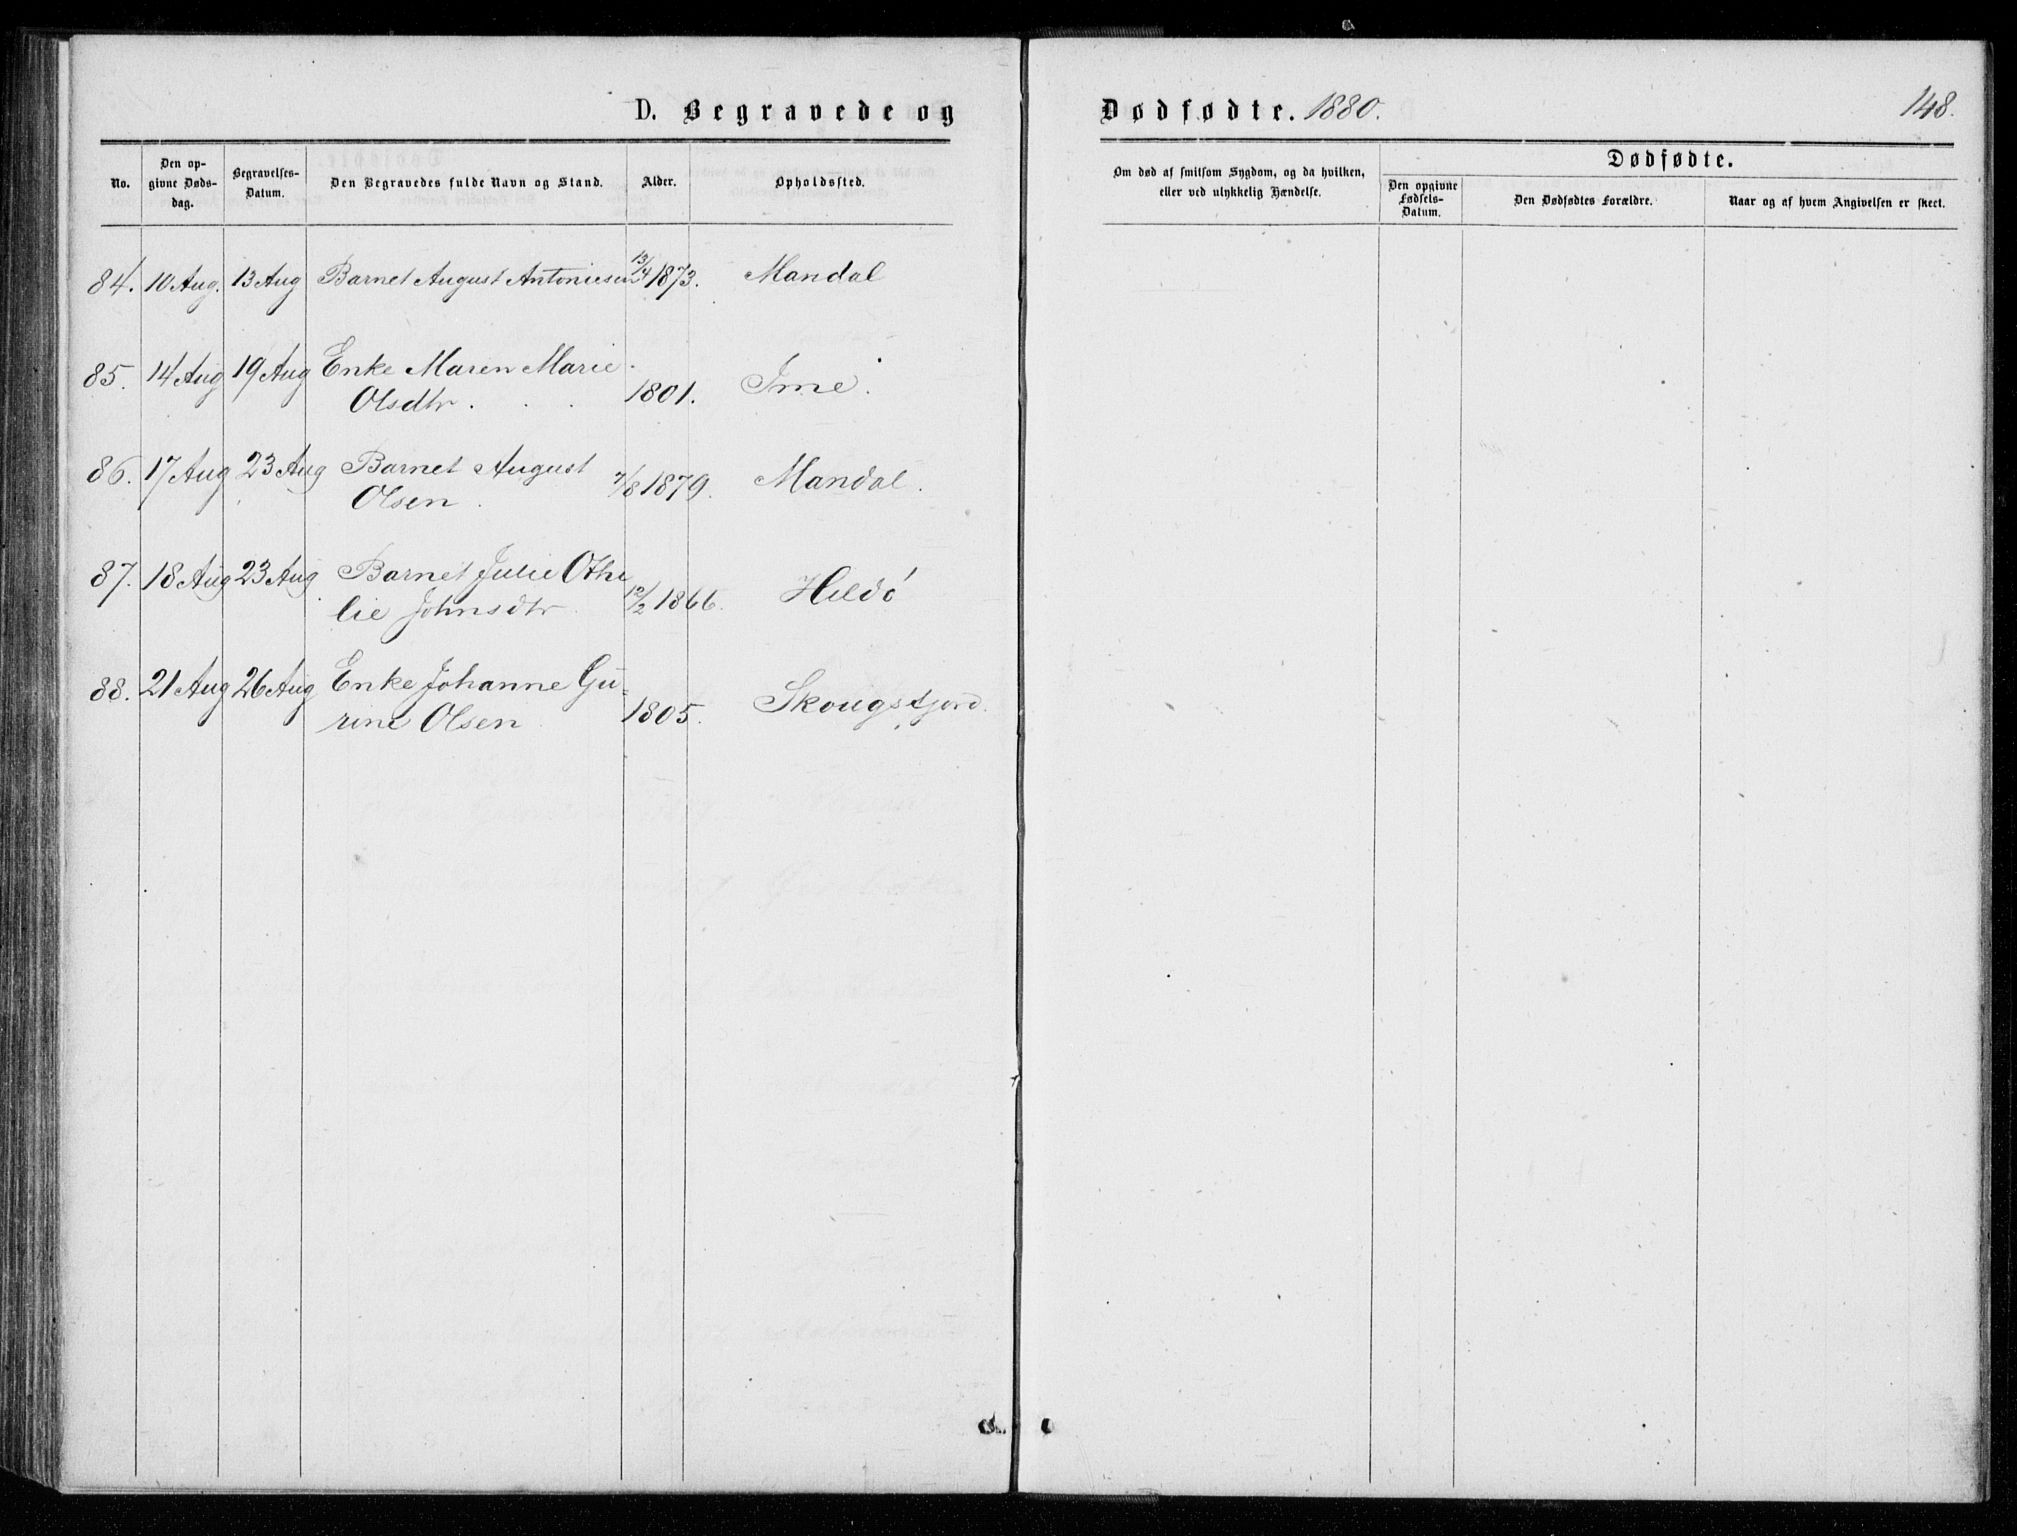 D. Begravede og Dødfødte. 1880. 148.
No.
Den op-
givne Døds-
dag.
Begravelses-
Datum.
Den Begravedes fulde Navn og Stand.
Alder.
Opholdssted.
Om død af smitsom Sygdom, og da hvilken,
eller ved ulykkelig Hændelse.
Dødfødte.
Den opgivne
Fødsels-
Datum.
Den Dødfødtes Forældre.
Naar og af hvem Angivelsen er skeet.
84. 10 Aug. 13 Aug Barnet August Antoniesen 13/4 1873. Mandal
85. 14 Aug 19 Aug Enke Maren Marie
Olsdtr. 1801. Ime.
86. 17 Aug 23 Aug Barnet August
Olsen. 7/8 1879. Mandal.
87. 18 Aug 23 Aug Barnet Julie Othi
lie Johnsdtr 12/2 1866. Hildø
88. 21 Aug 26 Aug Enke Johanne Gu-
rine Olsen 1805. Skougsfjord.